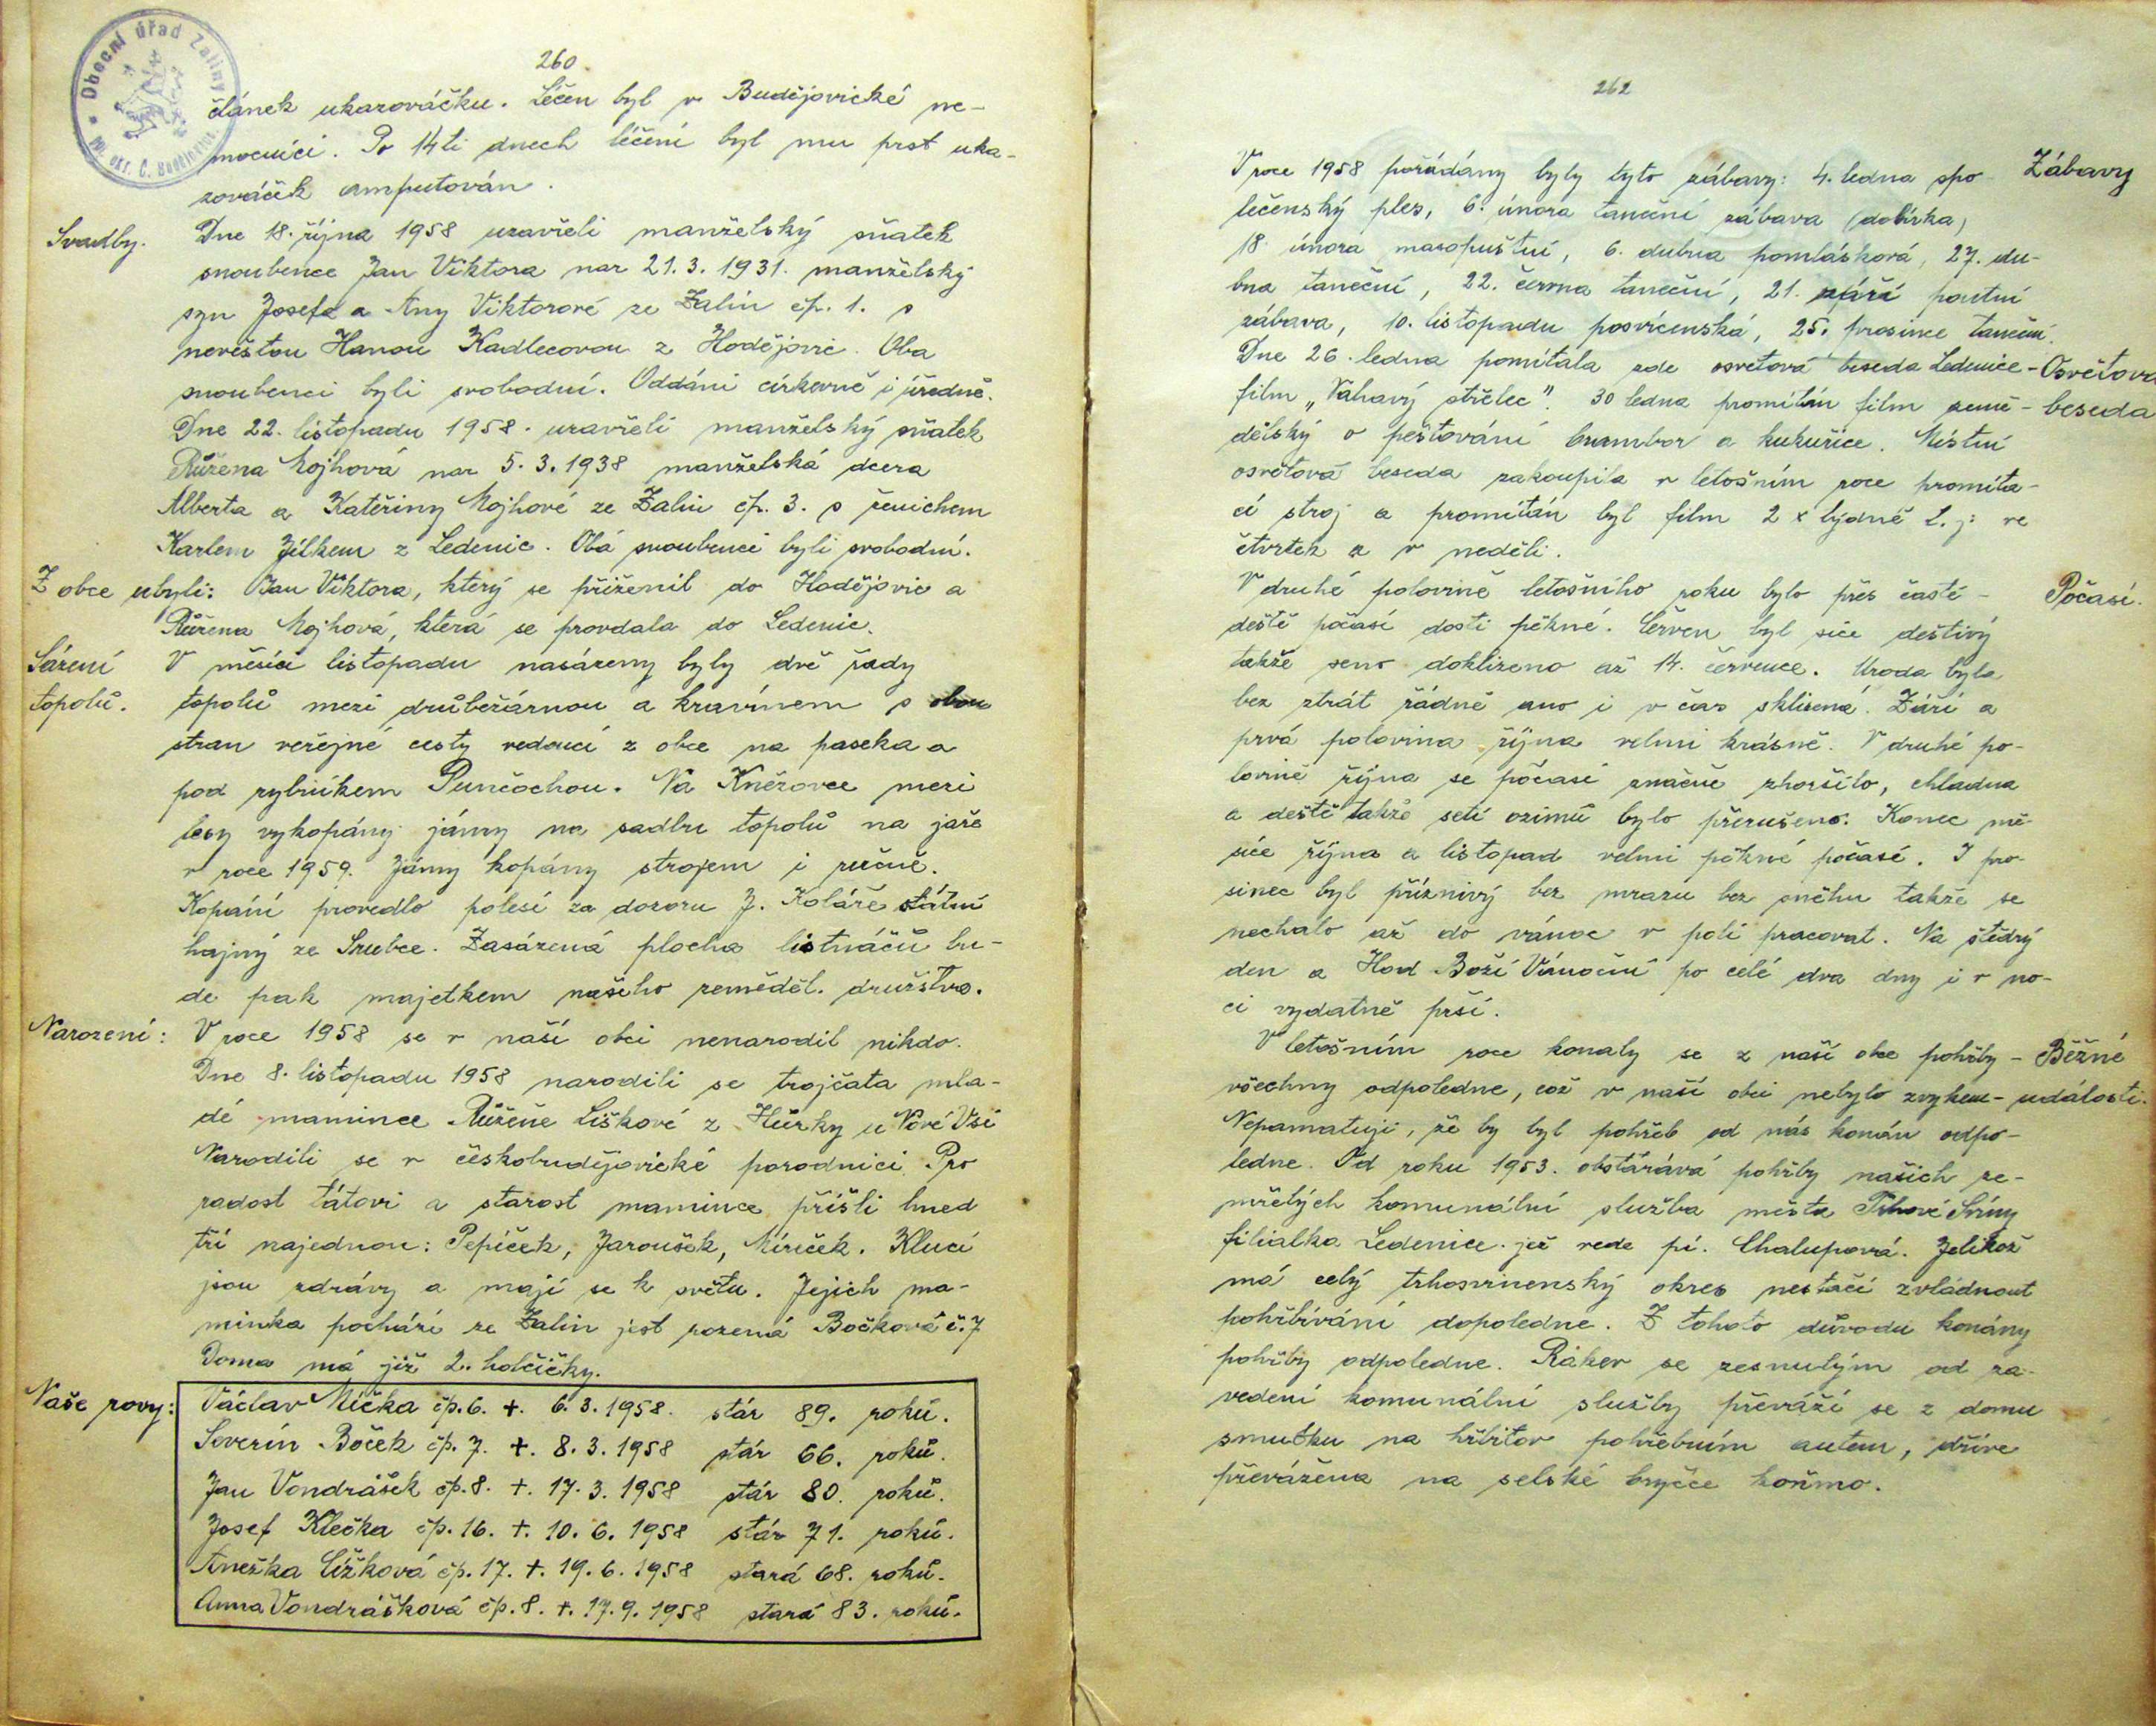 Obecní úřad Zaliny
okr. Č. Budějovice
260
článek ukazováčku. Léčen byl v Budějovické ne-
mocnici. Po 14ti dnech léčení byl mu prst uka-
zováček amputován.
Svadby.
Dne 18. října 1958 uzavřeli manželský sňatek
snoubence Jan Viktora nar 21.3.1931. manželský
syn Josefa a Any Viktorové ze Zalin čp. 1. s
nevěstou Hanou Kadlecovou z Hodějovic. Oba
snoubenci byli svobodní. Oddáni církevně i úředně.
Dne 22. listopadu 1958. uzavřeli manželský sňatek
Růžena Mojhová nar 5.3.1938 manželská dcera
Alberta a Kateřiny Mojhové ze Zalin čp. 3. s ženichem
Karlem Jílkem z Ledenic. Obá snoubenci byli svobodní.
Z obce ubyli: Jan Viktora, který se přiženil do Hodějovic a
Růžena Mojhová, která se provdala do Ledenic.
Sázení
topolů.
V měsíci listopadu nasázeny byly dvě řady
topolů mezi drůbežárnou a kravínem s obou
stran veřejné cesty vedoucí z obce na paseka a
pod rybníkem Punčochou. Na Kněžovce mezi
lesy vykopány jámy na sadbu topolů na jaře
v roce 1959. Jámy kopány strojem i ručně.
Kopání provedlo polesí za dozoru J. Koláře státní
hajný ze Srubce. Zasázená plocha listnáčů bu-
de pak majetkem našeho zeměděl. družstva.
Narození:
V roce 1958 se v naší obci nenarodil nikdo.
Dne 8. listopadu 1958 narodili se trojčata mla-
dé mamince Růženě Liškové z Hůrky u Nové Vsi
Narodili se v českobudějovické porodnici. Pro
radost tátovi a starost mamince přišli hned
tři najednou: Pepíček, Jaroušek, Míreček. Kluci
jsou zdrávy a mají se k světu. Jejich ma-
minka pochází ze Zalin jest rozená Bočková č. 7
Doma má již 2. holčičky.
Naše rovy:
Václav Mička čp. 6. +. 6.3.1958. stár 89. roků.
Severín Boček čp. 7. +. 8.3.1958 stár 66. roků.
Jan Vondrášek čp. 8. +. 17.3.1958 stár 80. roků.
Josef Klečka čp. 16. +. 10.6.1958 stár 71. roků.
Anežka Čížková čp. 17. +. 19.6.1958 stará 68. roků.
Anna Vondrášková čp. 8. +. 17.9.1958 stará 83. roků.
262
Zábavy
V roce 1958 pořádány byly tyto zábavy: 4. ledna spo
lečenský ples, 6. února taneční zábava (dobírka)
18. února masopustní, 6. dubna pomlásková, 27. du-
bna taneční, 22. června taneční, 21. září poutní
zábava, 10. listopadu posvícenská, 25. prosince taneční.
Dne 26. ledna pomítala zde osvětová beseda Ledenice - Osvětová
film "Váhavý střelec". 30 ledna promítán film země - beseda
dělský o pěstování brambor a kukuřice. Místní
osvětová beseda zakoupila v letošním roce promíta-
cí stroj a promítán byl film 2 x týdně t. j. ve
čtvrtek a v neděli.
Počasí.
V druhé polovině letošního roku bylo přes časté -
deště počasí dosti pěkné. Červen byl sice deštivý
takže seno doklizeno až 14. července. Uroda byla
bez ztrát řádně ano i v čas sklizená. Září a
prvá polovina října velmi krásně. V druhé po-
lovině října se počasí značně zhoršilo, chladna
a deště takže setí ozimů bylo přerušeno. Konec mě-
síce října a listopad velmi pěkné počasí. I pro-
sinec byl příznivý bez mrazu bez sněhu takže se
nechalo až do vánoc v poli pracovat. Na štědrý
den a Hod Boží Vánoční po celé dva dny i v no-
ci vydatně prší.
V letošním roce konaly se z naší obce pohřby - Běžné
všechny odpoledne, což v naší obci nebylo zvykem - události.
Nepamatuji, že by byl pohřeb od nás konán odpo-
ledne. Od roku 1953. obstárává pohřby našich ze-
mřelých komunální služba města Trhové Sviny
filialka Ledenice. jež vede pí. Chalupová. Jelikož
má celý trhosvinenský okres nestačí zvládnout
pohřbívání dopoledne. Z tohoto důvodu konány
pohřby odpoledne. Rakev se zesnulým od za-
vedení komunální služby převáží se z domu
smutku na hřbitov pohřebním autem, dříve
převážena na selské bryčce koňmo.